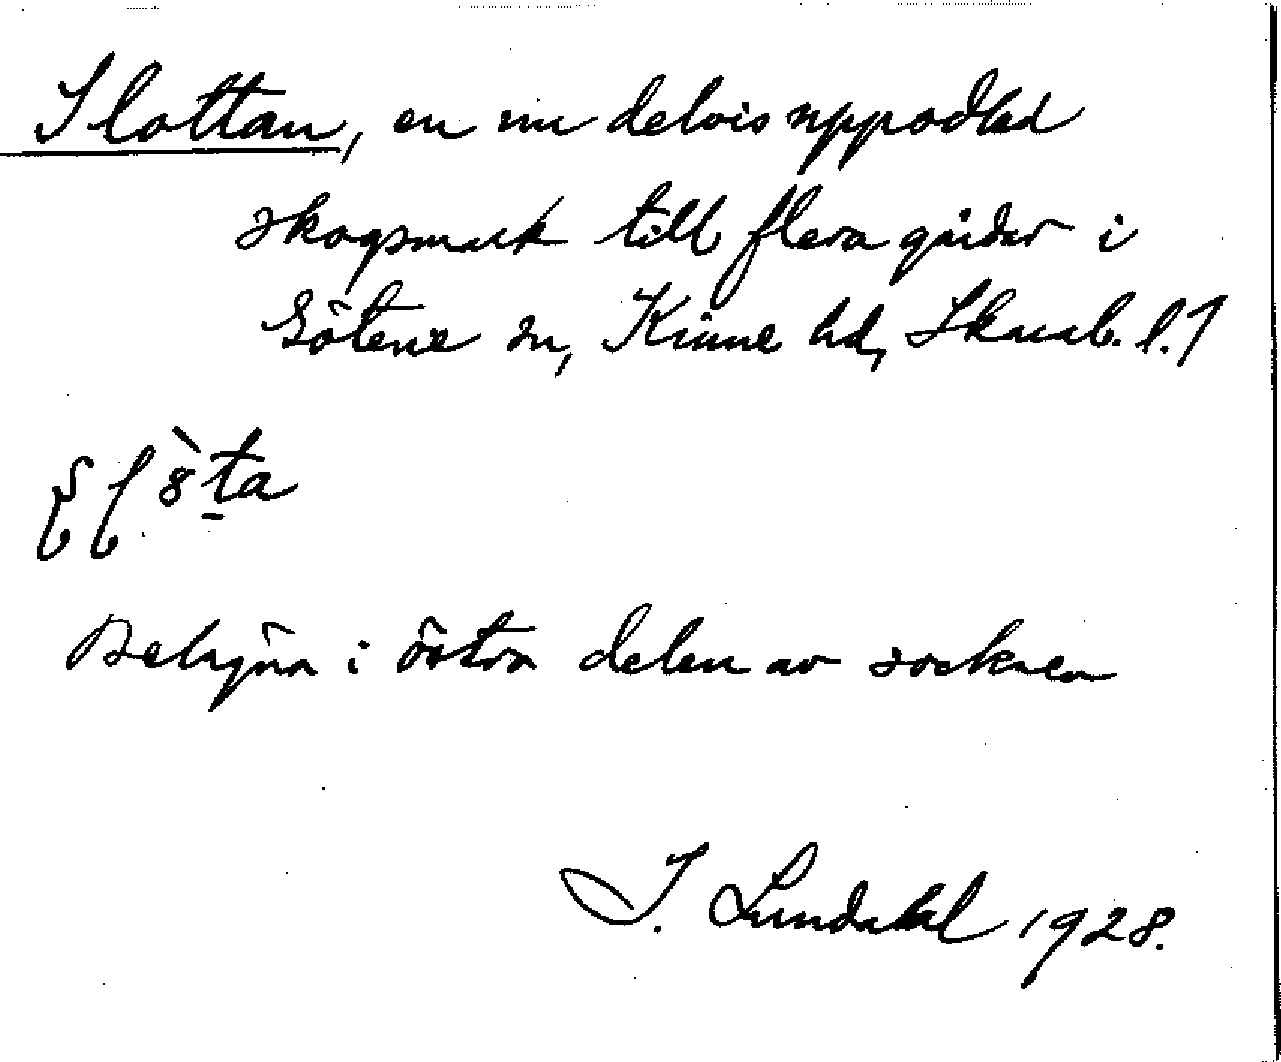 Slottan, en nu delvis uppodlad
skogsmark till flera gårdar i
Götene sn, Kinne hd, Skarab. l.
Belägna i östra delen av socknen
J. Lundahl 1928.